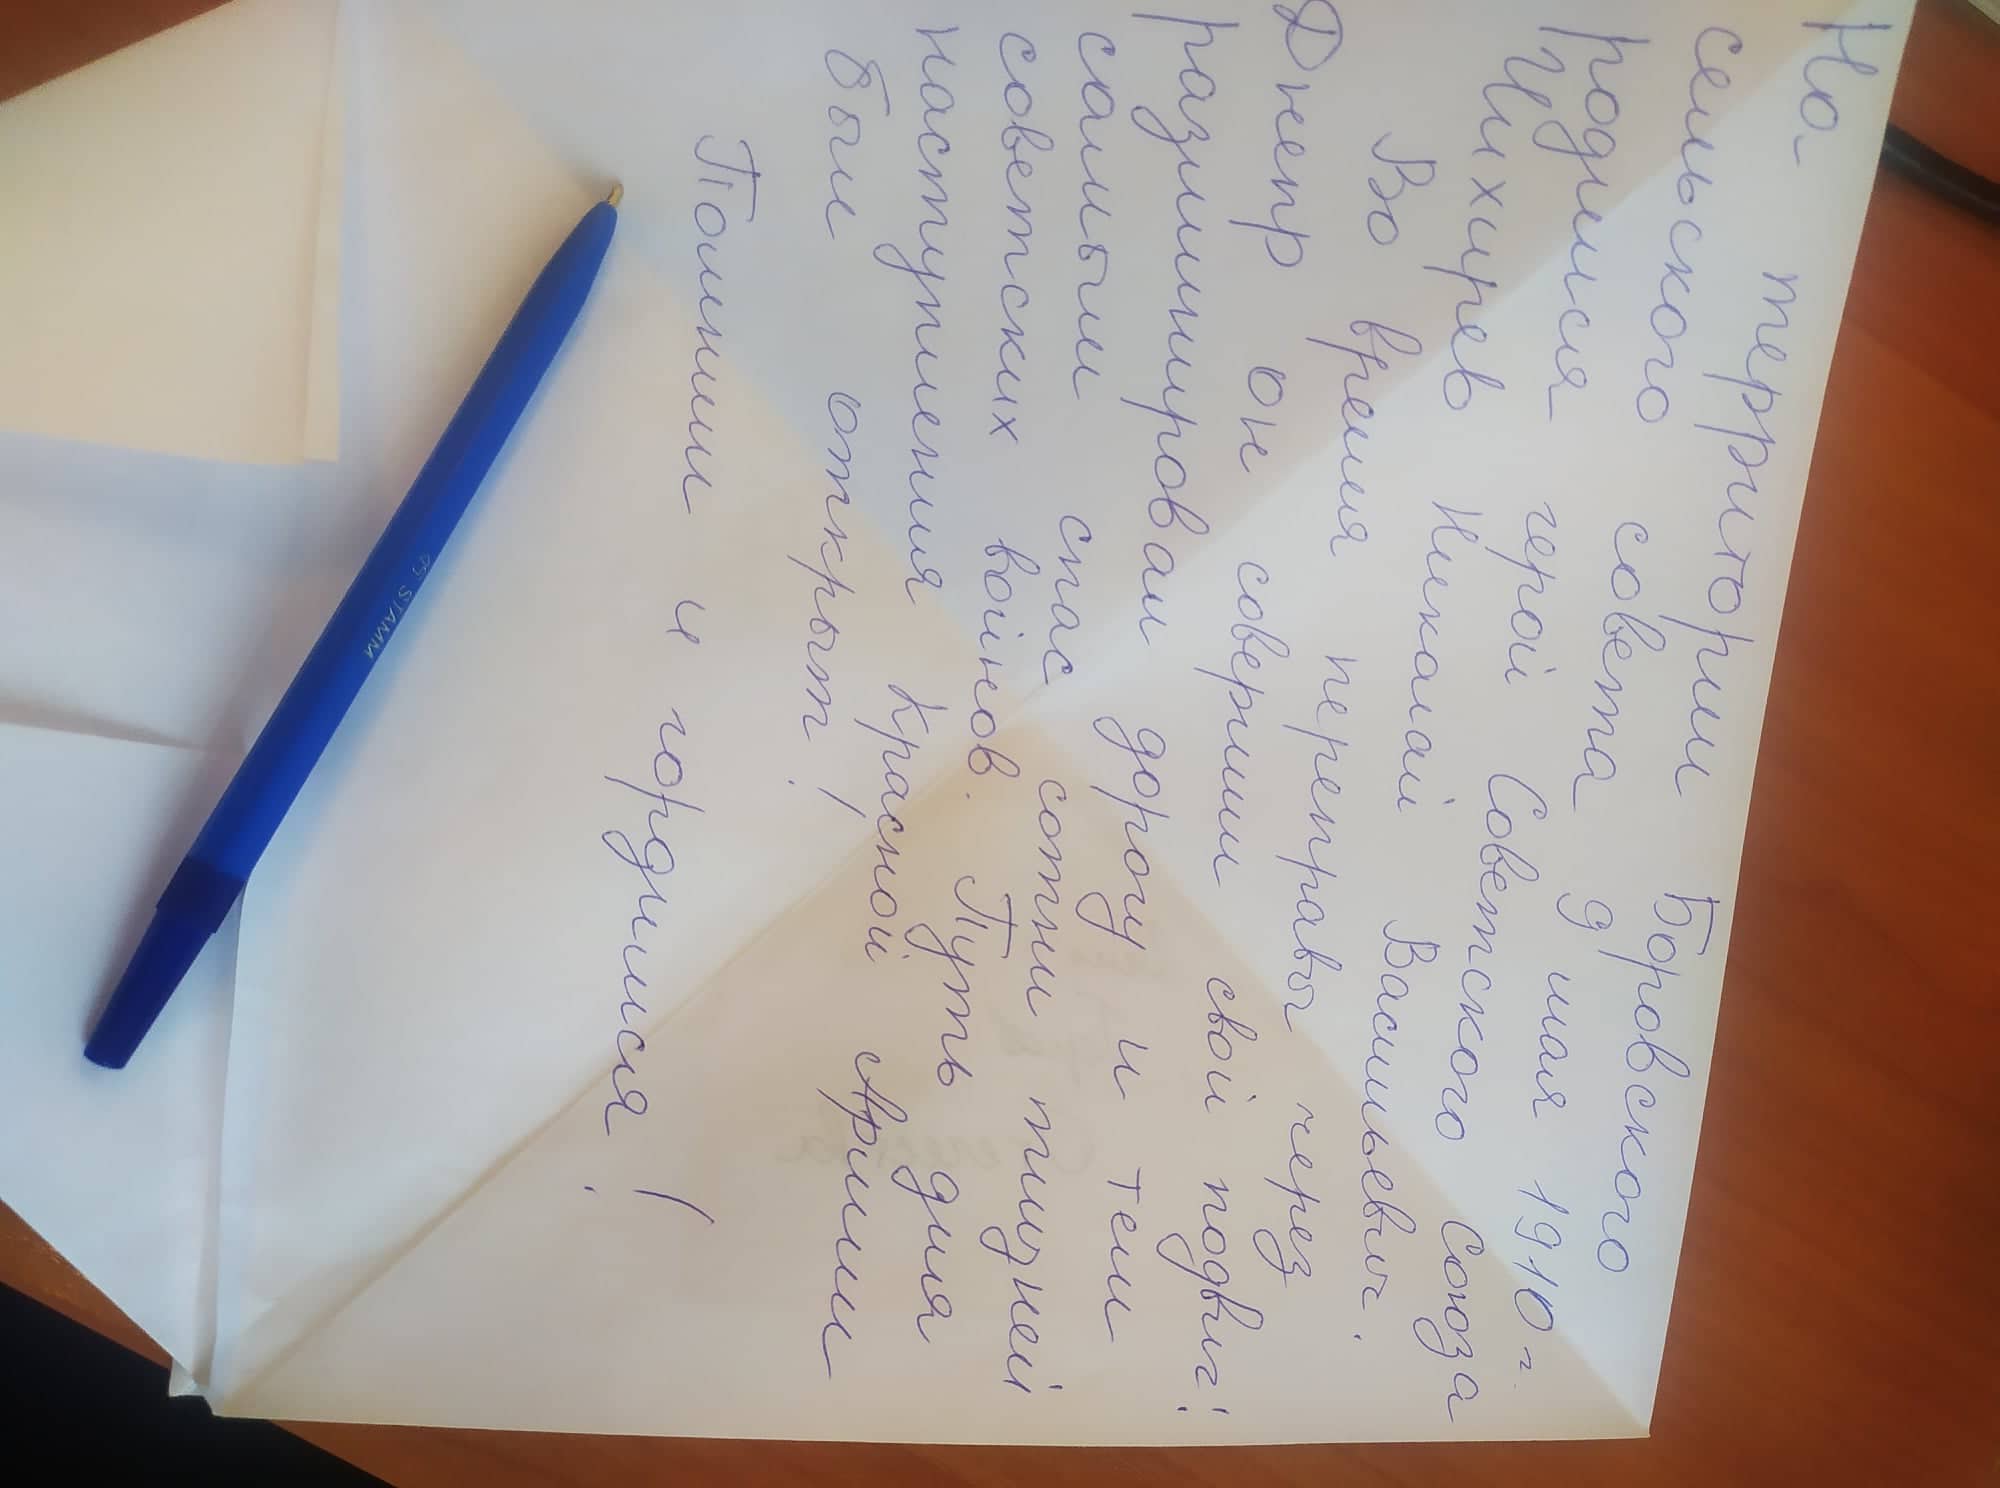 На территории Боровского
сельского совета 9 мая 1910 г.
родился герой Советского Союза
Шихирев Николай Васильевич.
Во время переправы через
Днепр он совершил свой подвиг:
разминировал дорогу и тем
самым спас сотни жизней
советских воинов. Путь для
наступления Красной Армии
был открыт!
Помним и гордимся!
OS STAMM